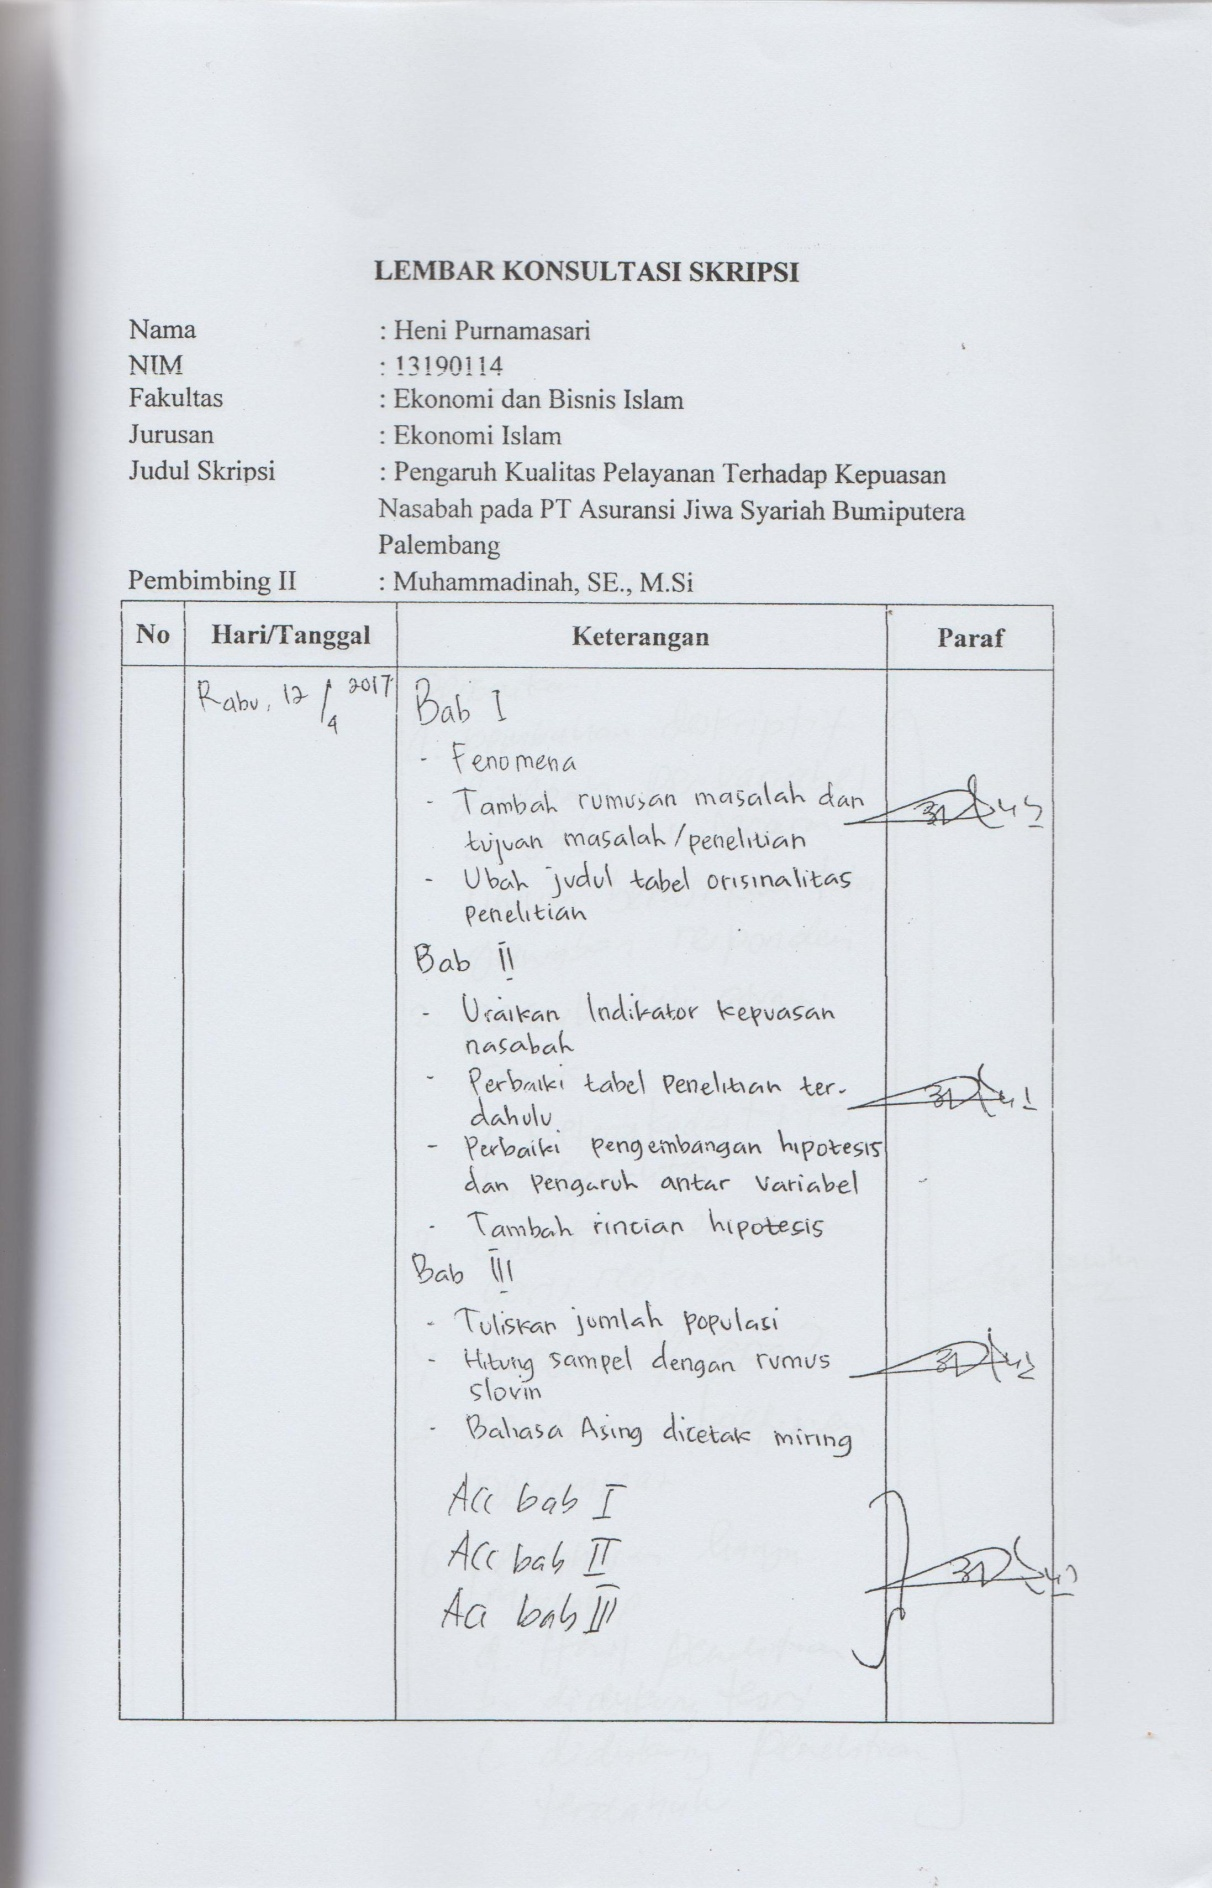 LEMBAR KONSULTASI SKRIPSI
Nama : Heni Purnamasari
NIM : 13190114
Fakultas : Ekonomi dan Bisnis Islam
Jurusan : Ekonomi Islam
Judul Skripsi : Pengaruh Kualitas Pelayanan Terhadap Kepuasan
Nasabah pada PT Asuransi Jiwa Syariah Bumiputera
Palembang
Pembimbing II : Muhammadinah, SE., M.Si
No Hari/Tanggal Keterangan Paraf
Rabu, 12/4 2017 Bab I
- Fenomena
- Tambah rumusan masalah dan
tujuan masalah/penelitian
- Ubah judul tabel orisinalitas
penelitian
Bab II
- Uraikan Indikator kepuasan
nasabah
- Perbaiki tabel penelitian ter-
dahulu.
- Perbaiki pengembangan hipotesis
dan pengaruh antar variabel
- Tambah rincian hipotesis
Bab III
- Tuliskan jumlah populasi
- Hitung sampel dengan rumus
slovin
- Bahasa Asing dicetak miring
Acc bab I
Acc bab II
Acc bab III